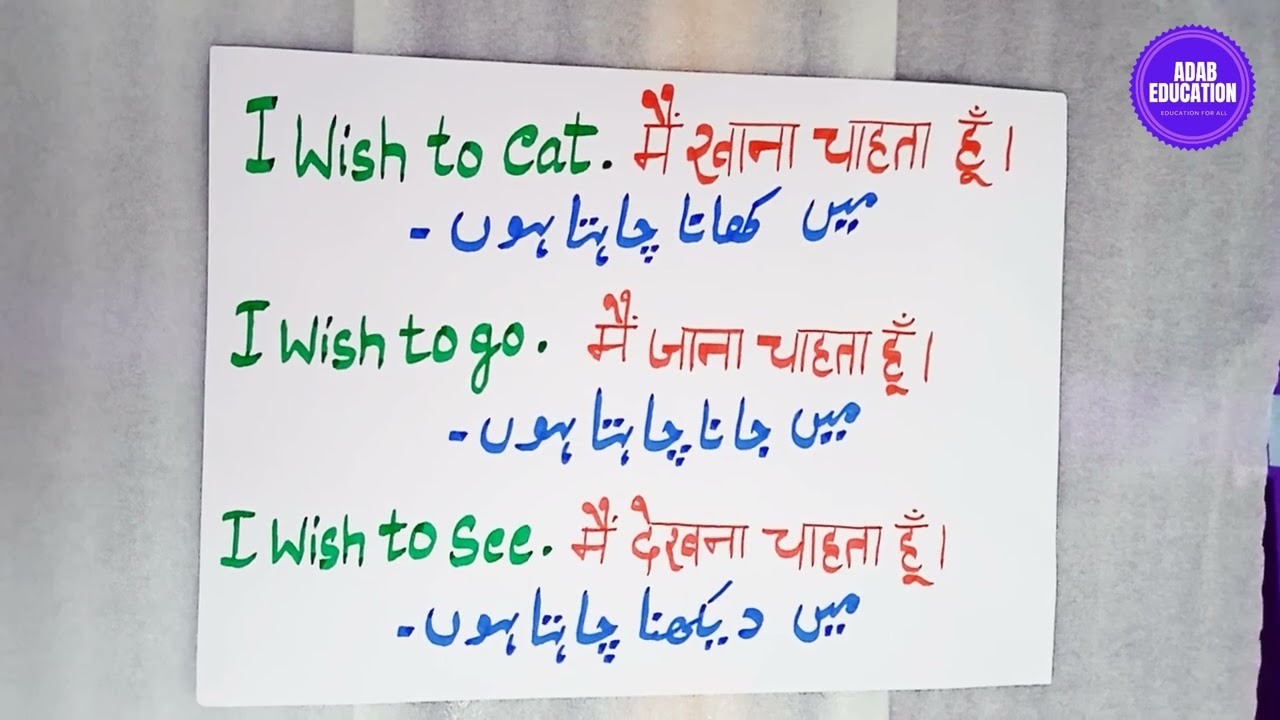 I Wish to eat. मैं खाना चाहता हूँ।
میں کھانا چاہتا ہوں۔
I Wish to go. मैं जाना चाहता हूँ।
میں جانا چاہتا ہوں۔
I Wish to See. मैं देखना चाहता हूँ।
میں دیکھنا چاہتا ہوں۔
ADAB
EDUCATION
EDUCATION FOR ALL